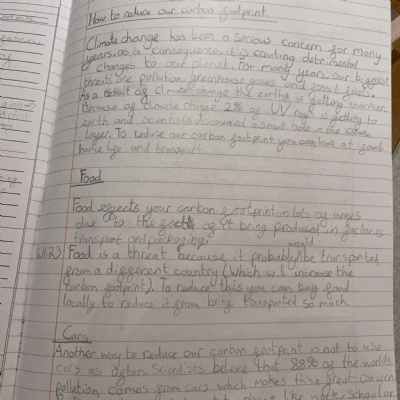 How to reduce our carbon footprint.
Climate change has been a serious concern for many
years, as a consequence it is causing detremental
changes to our planet. For many years our biggest
threats are pollution, greenhouse gases and fossil fuels.
As a result of climate change the earth is getting warmer.
Because of climate change 2% of UV rays is getting to
earth and scientists discovered a small hole in the ozone
layer. To reduce our carbon footprint you can look at food
horse life and transport.
Food
Food effects your carbon footprint in lots of ways
due to the fact of it being produced in factories
transport and packaging.
would
16.11.23 Food is a threat because it probably be transported
from a different country (which will increase the
carbon footprint). To reduce this you can buy food
locally to reduce it from being transported so much.
Cars
Another way to reduce our carbon footprint is not to use
cars as often. Scientists believe that 88% of the worlds
pollution comes from cars which makes this a great concern
like work, school or